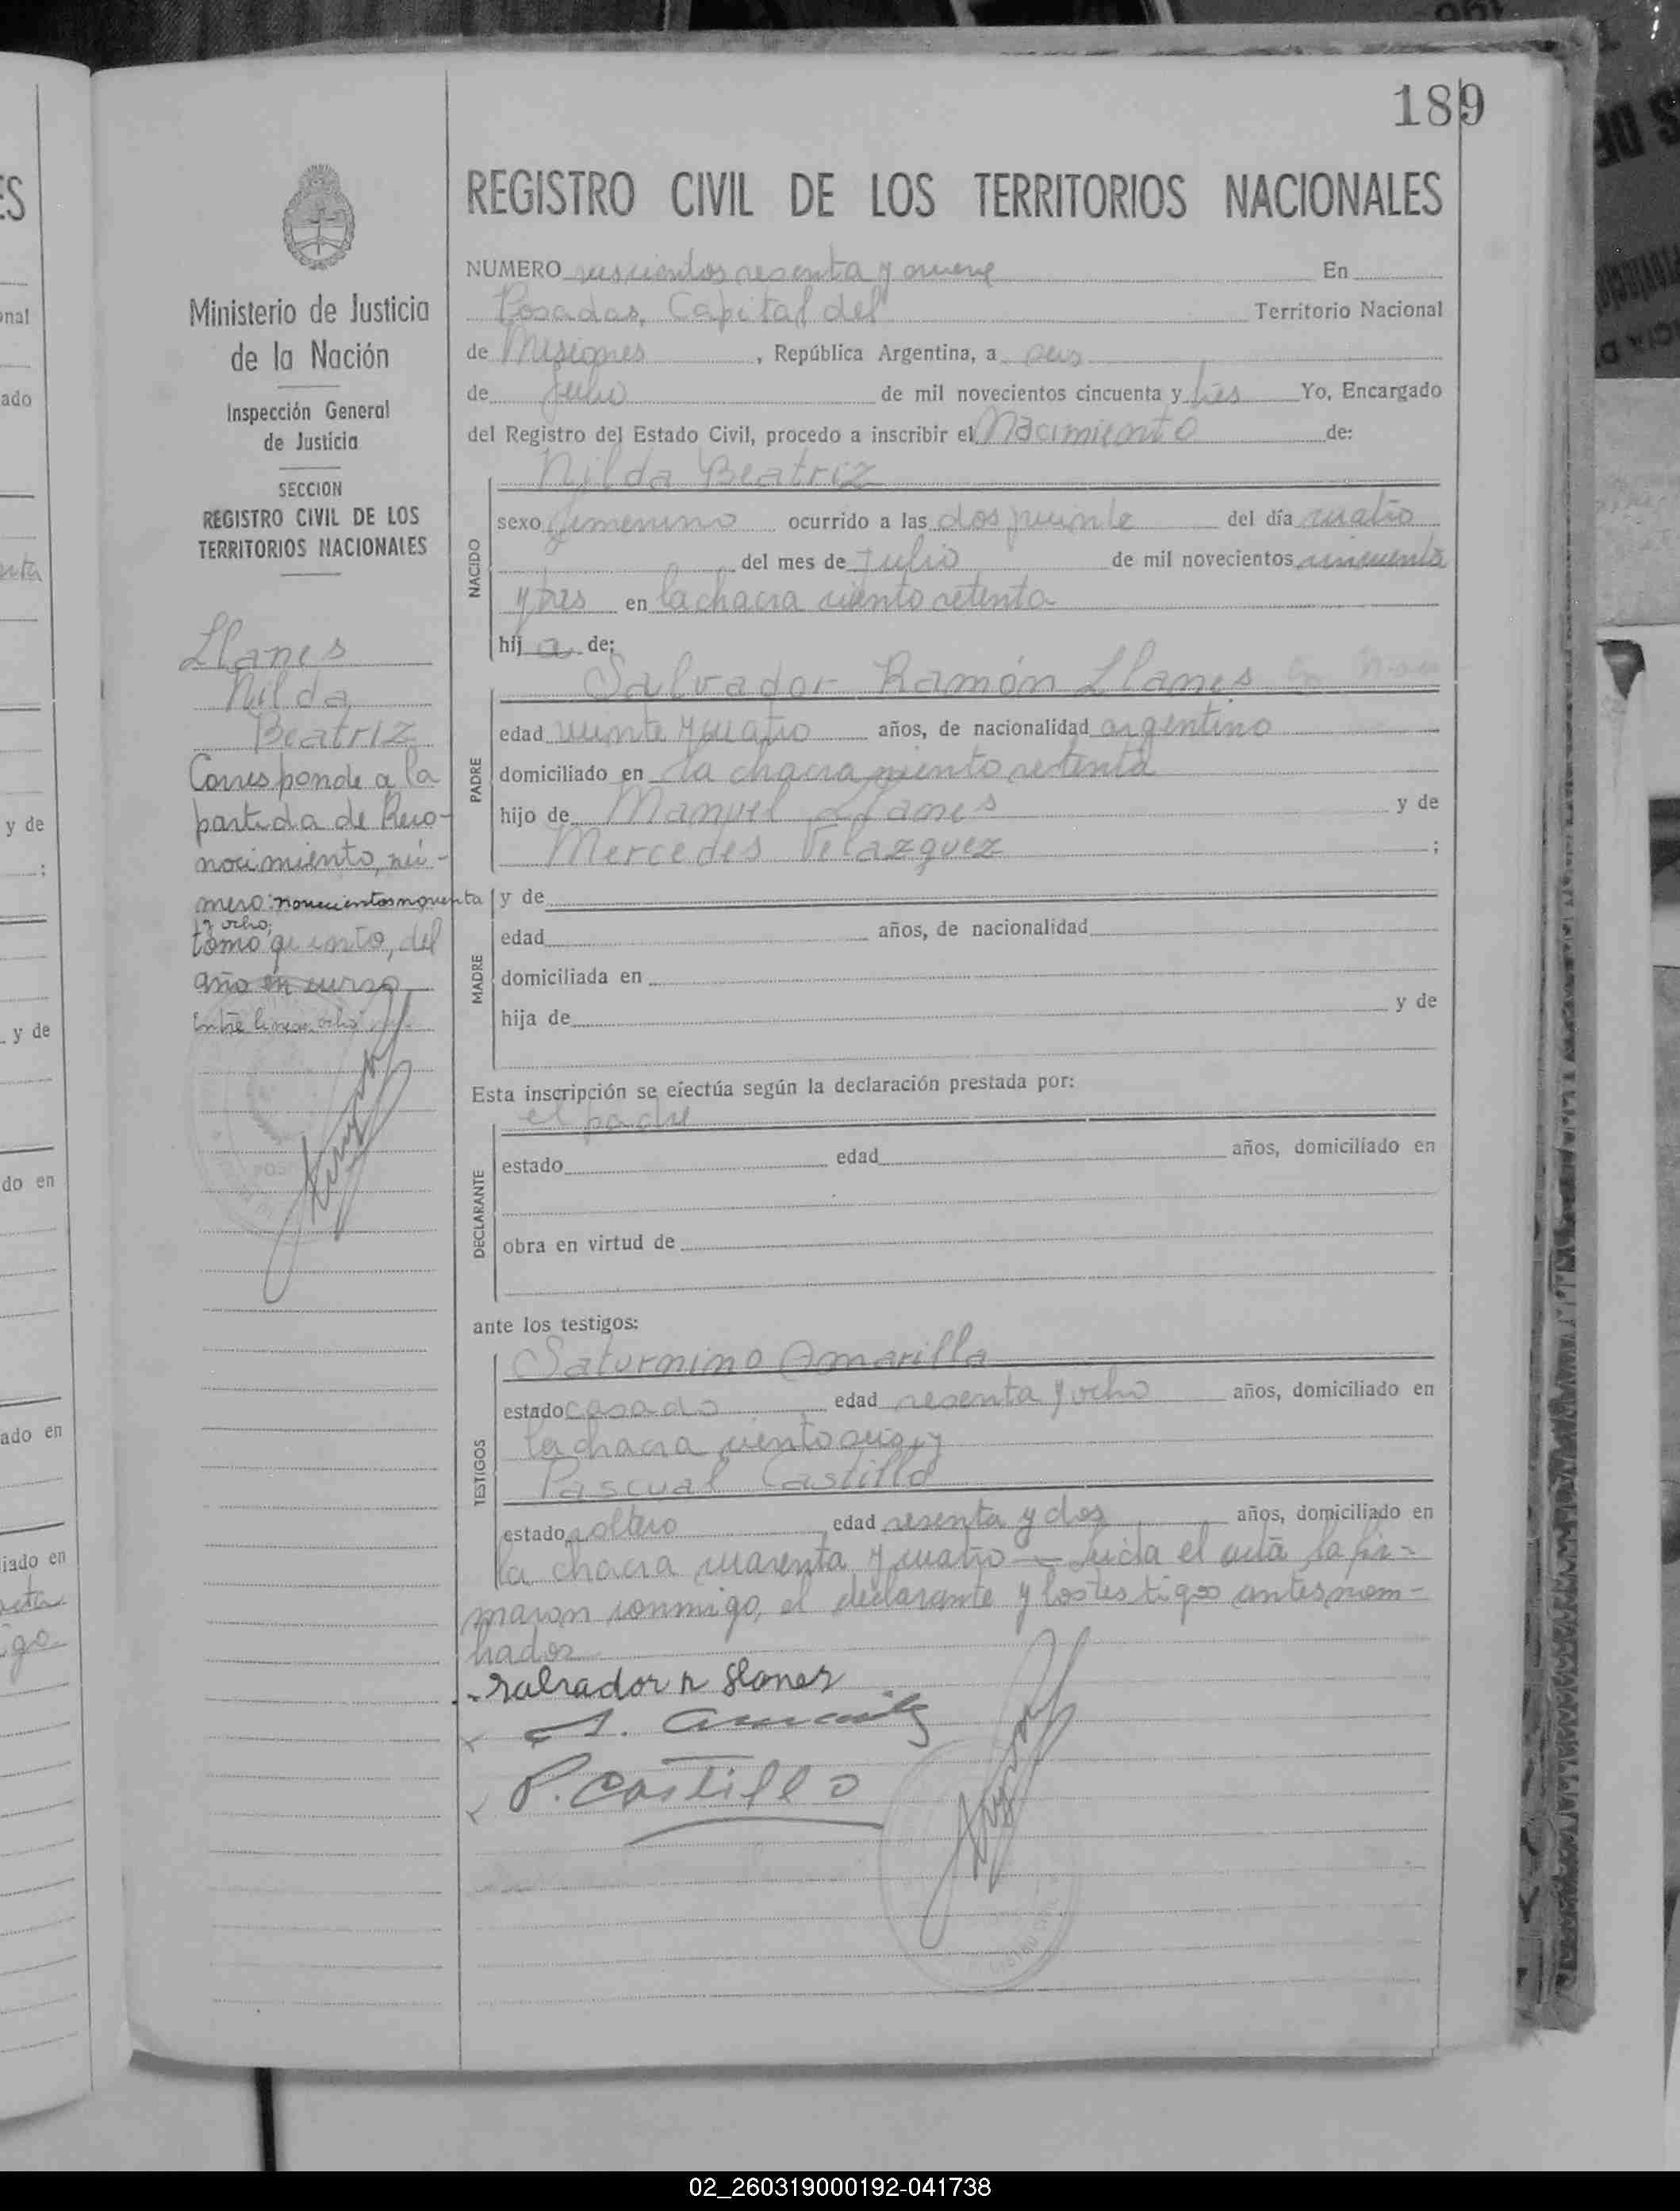 189
REGISTRO CIVIL DE LOS TERRITORIOS NACIONALES
NUMERO seiscientos sesenta y nueve En
Posadas, Capital del Territorio Nacional
de Misiones, República Argentina, a seis
de Julio de mil novecientos cincuenta y tres Yo, Encargado
del Registro del Estado Civil, procedo a inscribir el Nacimiento de:
NACIDO
Nilda Beatriz
sexo femenino ocurrido a las dos veinte del día cuatro
del mes de Julio de mil novecientos cincuenta
y tres en la chacra ciento setenta
hija de:
PADRE
Salvador Ramón Llanes
edad veinte y cuatro años, de nacionalidad argentino
domiciliado en la chacra ciento setenta
hijo de Manuel Llanes y de
Mercedes Velazquez ;
MADRE
y de
edad años, de nacionalidad
domiciliada en
hija de y de
Esta inscripción se efectúa según la declaración prestada por:
el padre
DECLARANTE
estado edad años, domiciliado en
obra en virtud de
ante los testigos:
TESTIGOS
Saturnino Amarilla
estado casado edad sesenta y ocho años, domiciliado en
la chacra ciento seis, y
Pascual Castillo
estado soltero edad sesenta y dos años, domiciliado en
la chacra cuarenta y cuatro — Leída el acta la fir-
maron conmigo, el declarante y los testigos antes nom-
brados
Salvador R Llanes
S. Amarilla
P. Castillo
Ministerio de Justicia
de la Nación
Inspección General
de Justicia
SECCION
REGISTRO CIVIL DE LOS
TERRITORIOS NACIONALES
Llanes
Nilda
Beatriz
Corresponde a la
partida de Reco-
nocimiento, nú-
mero: novecientos noventa
y ocho,
tomo quinto, del
año en curso
Entre lineas: ocho
ES
onal
ado
y de
;
y de
do en
ado en
iado en
02_260319000192-041738